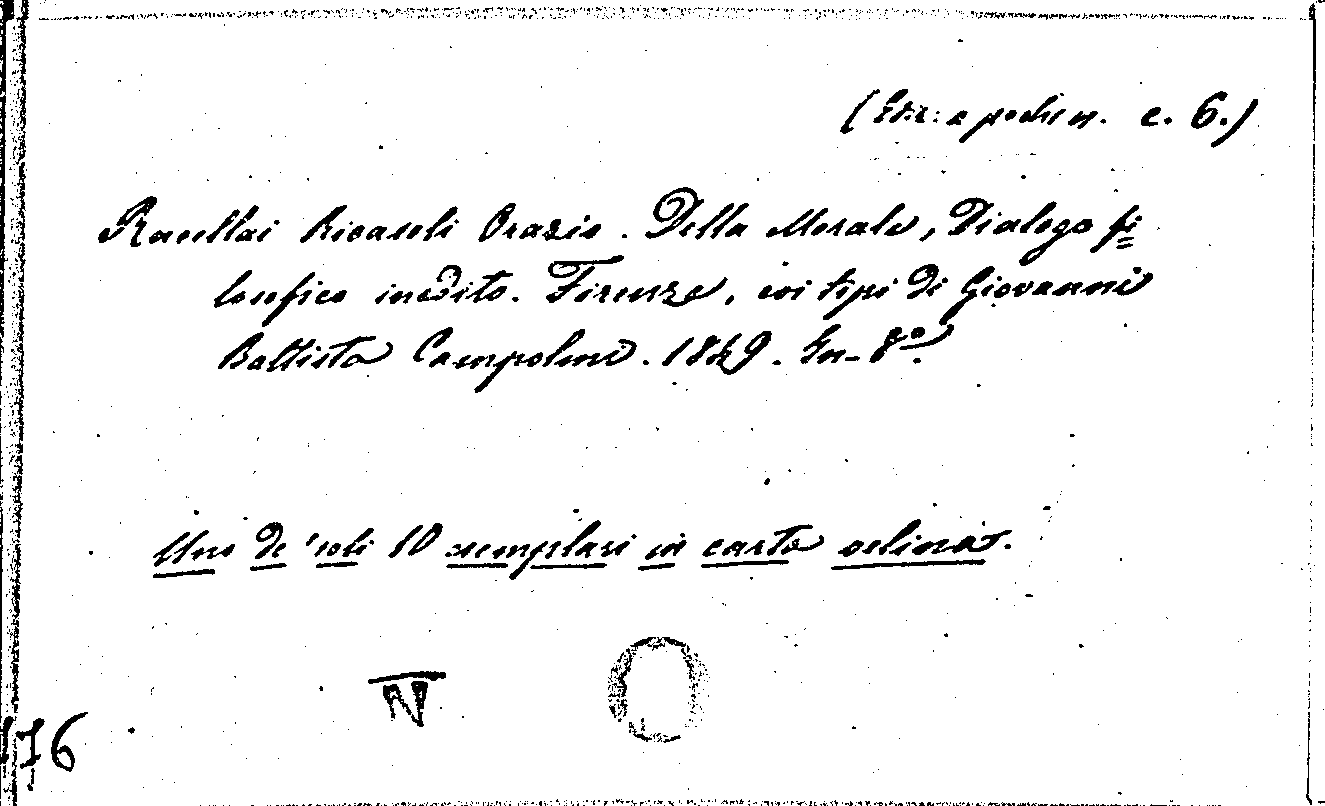 (Ediz: a pochi es. c. 6.)
Rucellai Ricasoli Orazio. Della Morale, Dialogo fi=
losofico inedito. Firenze, coi tipi di Giovanni
Battista Campolmi. 1849. In-8º.
Uno de' soli 10 esemplari in carta velina.
N
176